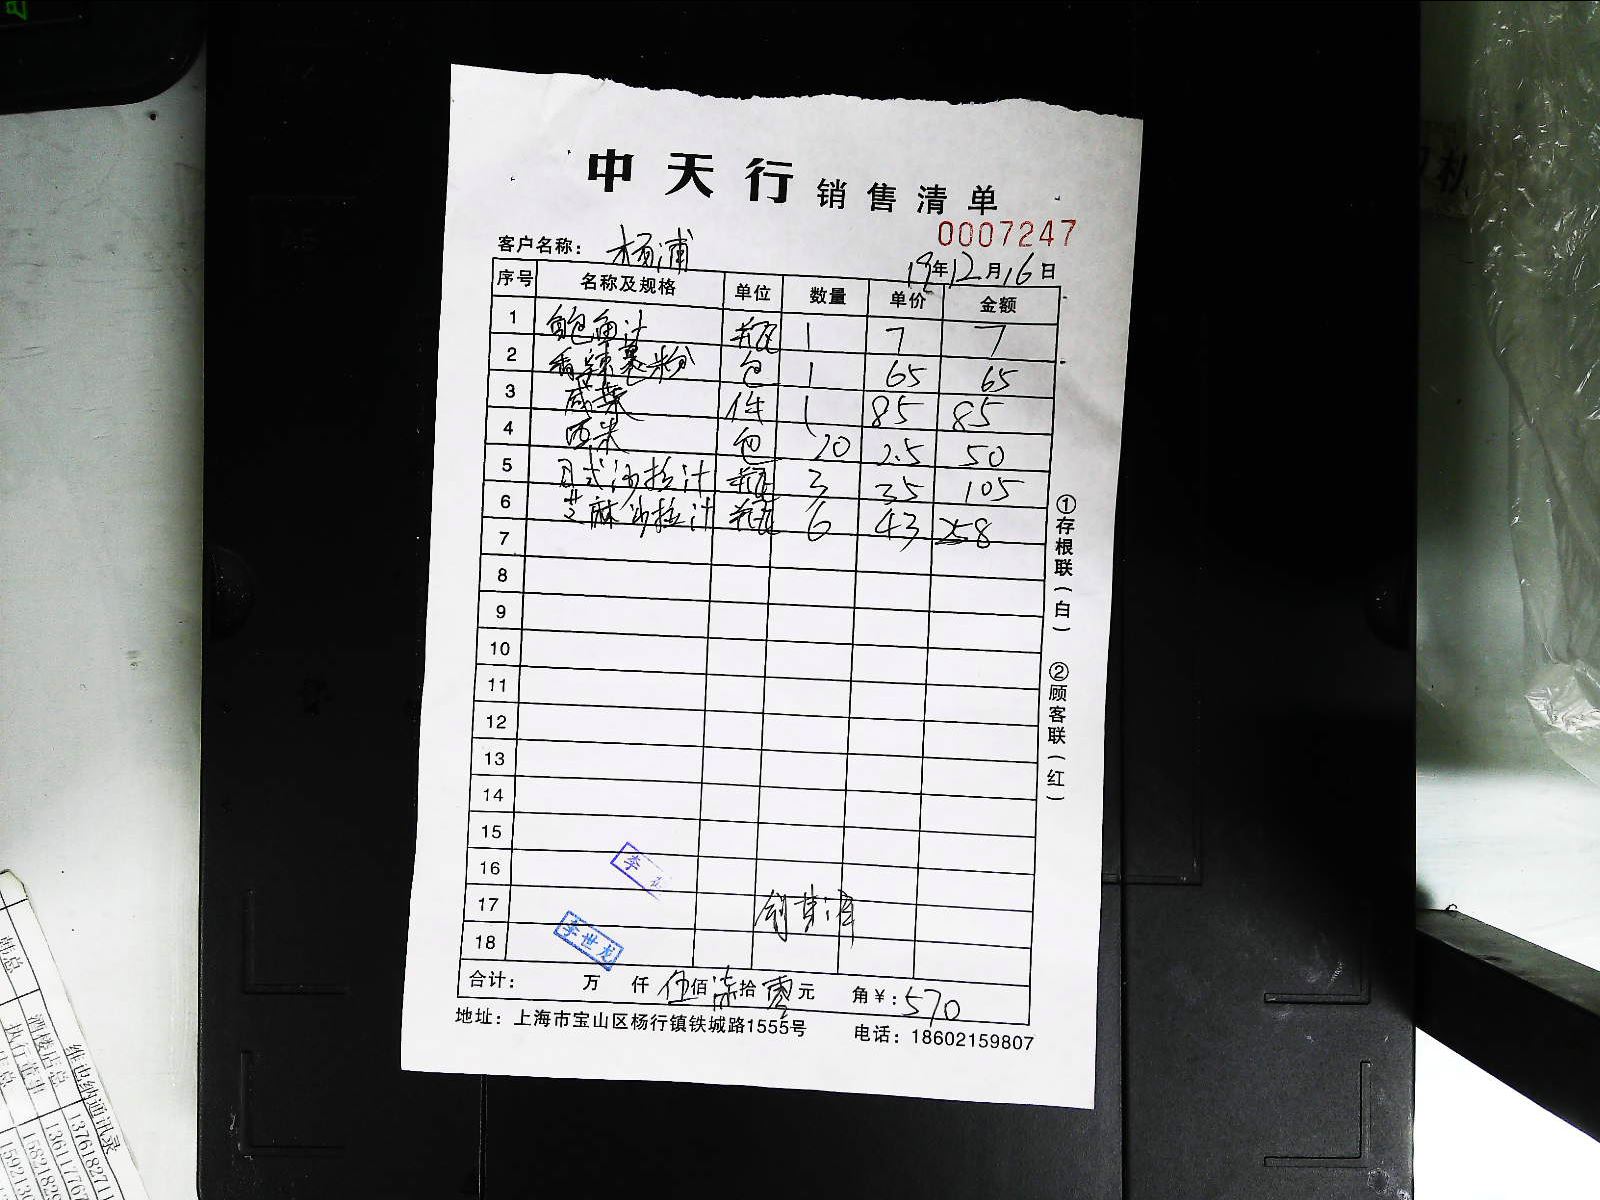 中天行 销售清单
0007247
客户名称: 杨浦
19年12月16日
序号 名称及规格 单位 数量 单价 金额
1 鲍鱼汁 瓶 1 7 7
2 香辣裹粉 包 1 65 65
3 咸菜 件 1 85 85
4 西米 包 20 2.5 50
5 日式沙拉汁 瓶 3 35 105
6 芝麻沙拉汁 瓶 6 43 258
7
8
9
10
11
12
13
14
15
16 李
17
18 李世龙
合计: 万 仟 伍佰柒拾零元 角¥:570
地址:上海市宝山区杨行镇铁城路1555号 电话:18602159807
①存根联(白) ②顾客联(红)
维也纳通讯录
酒楼店总
执行董事